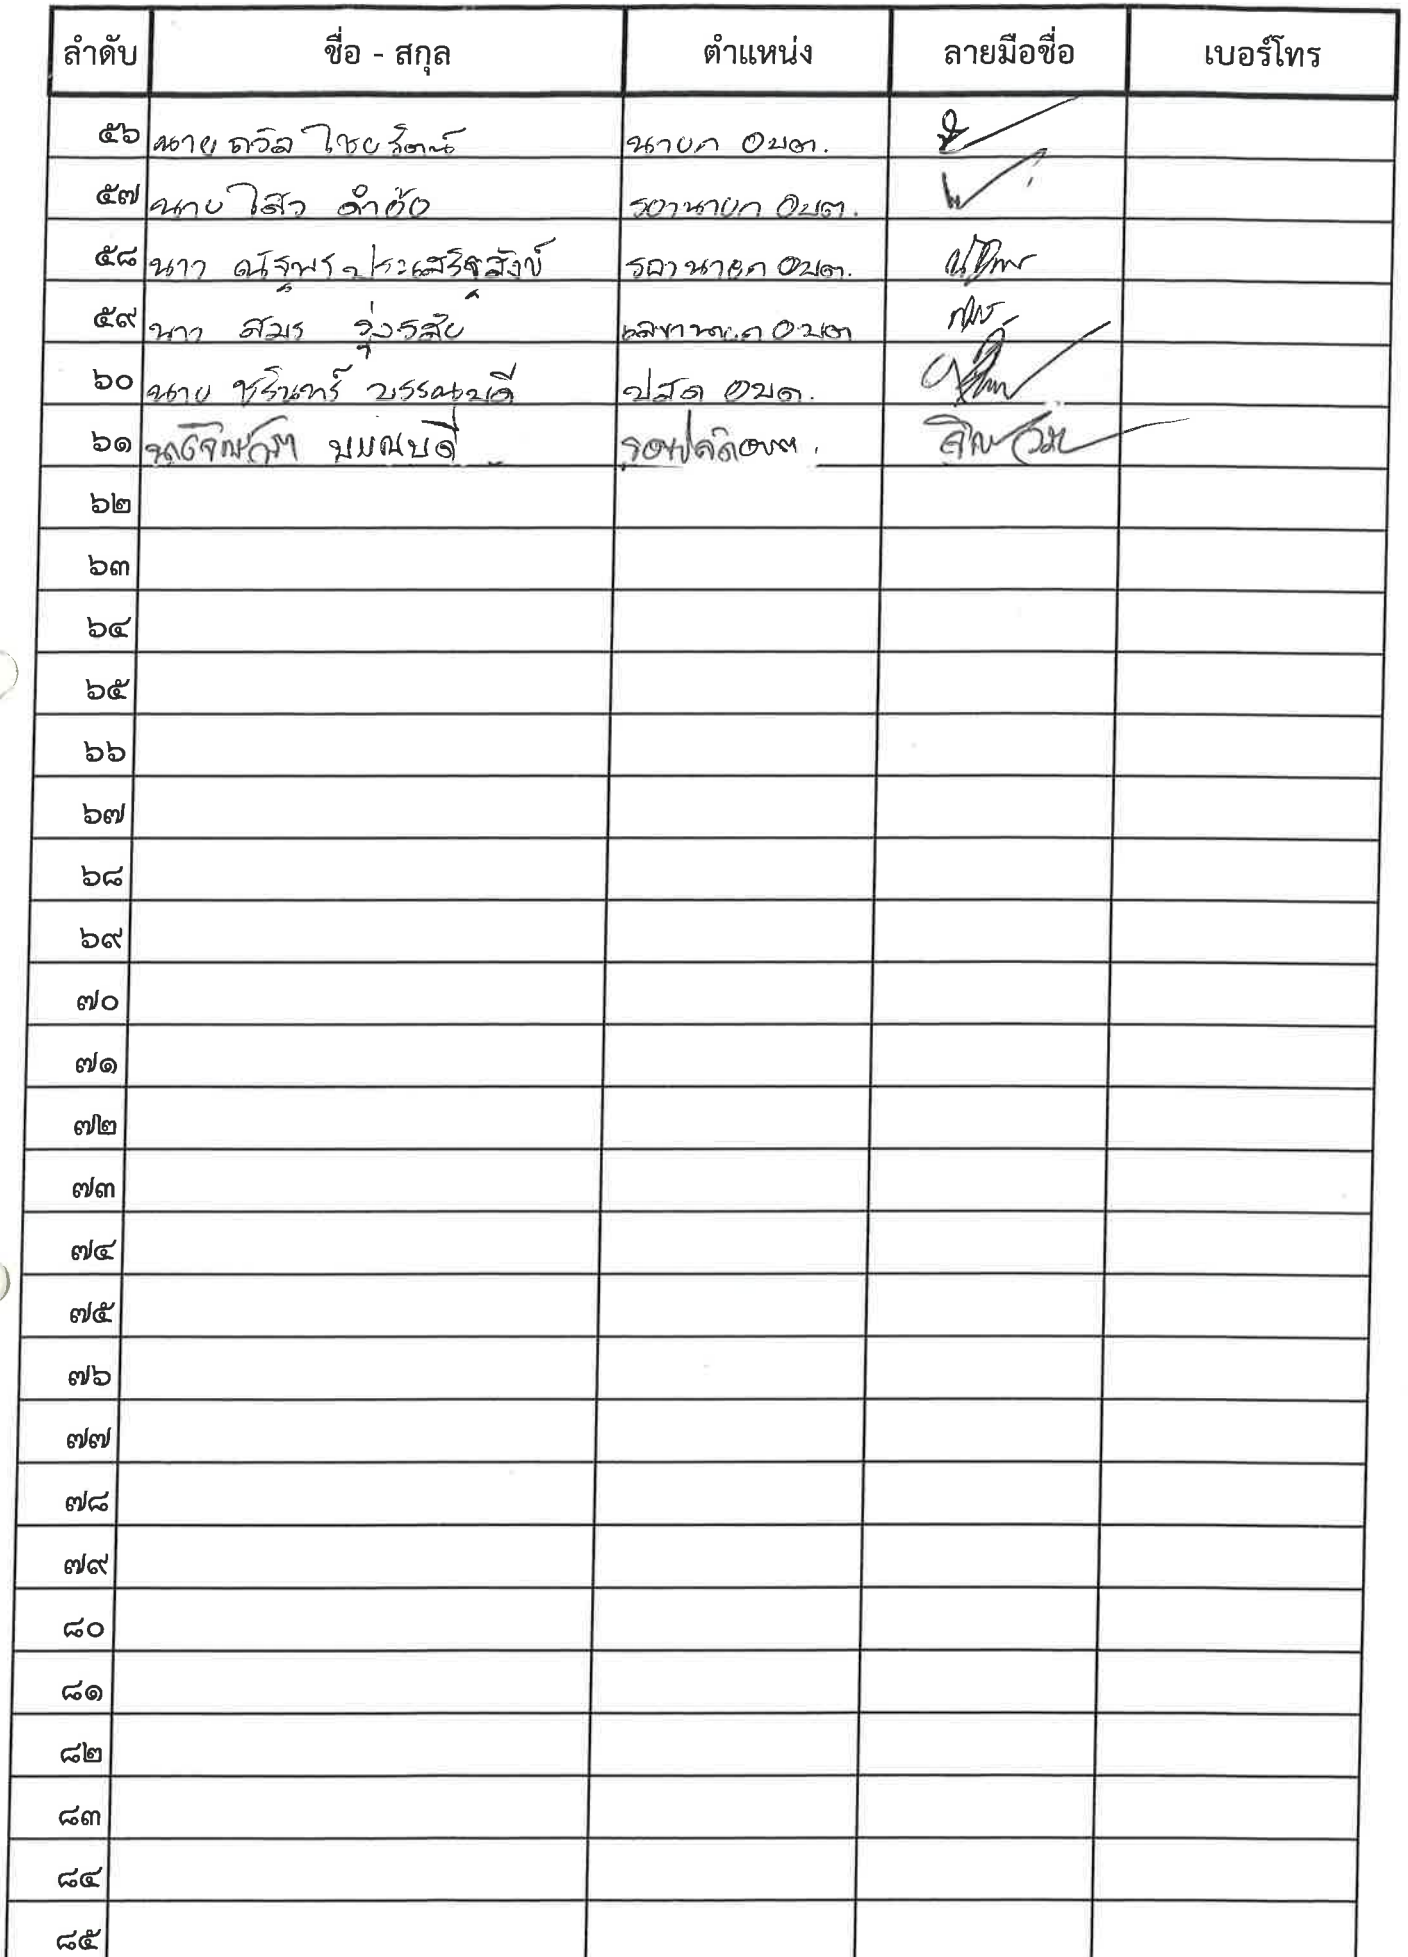 ลำดับ ชื่อ - สกุล ตำแหน่ง ลายมือชื่อ เบอร์โทร
๕๖ นาย ถวิล ไชยรัตน์ นายก อบต.
๕๗ นาย ไสว ดำอ้อ รองนายก อบต.
๕๘ นาง ณัฐพร ประเสริฐสังข์ รองนายก อบต.
๕๙ นาง สมร รุ่งรสัย เลขานายก อบต
๖๐ นาย ชรินทร์ บรรณบดี ปลัด อบต.
๖๑ รองปลัดอบต.
๖๒
๖๓
๖๔
๖๕
๖๖
๖๗
๖๘
๖๙
๗๐
๗๑
๗๒
๗๓
๗๔
๗๕
๗๖
๗๗
๗๘
๗๙
๘๐
๘๑
๘๒
๘๓
๘๔
๘๕